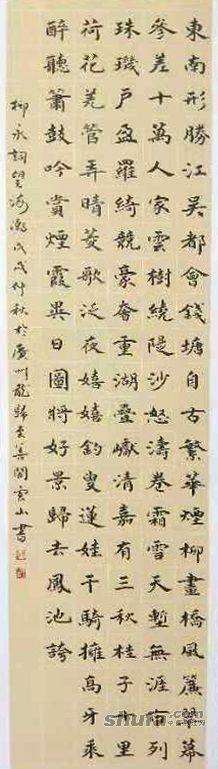 東南形勝江吳都會錢塘自古繁華煙柳畫橋風簾翠幕
參差十萬人家雲樹繞隄沙怒濤卷霜雪天塹無涯市列
珠璣戶盈羅綺競豪奢重湖疊巘清嘉有三秋桂子十里
荷花羌管弄晴菱歌泛夜嬉嬉釣叟蓮娃千騎擁高牙乘
醉聽簫鼓吟賞煙霞異日圖將好景歸去鳳池誇
柳永詞望海潮戊戌仲秋於廣州龍歸至善閣雲山書